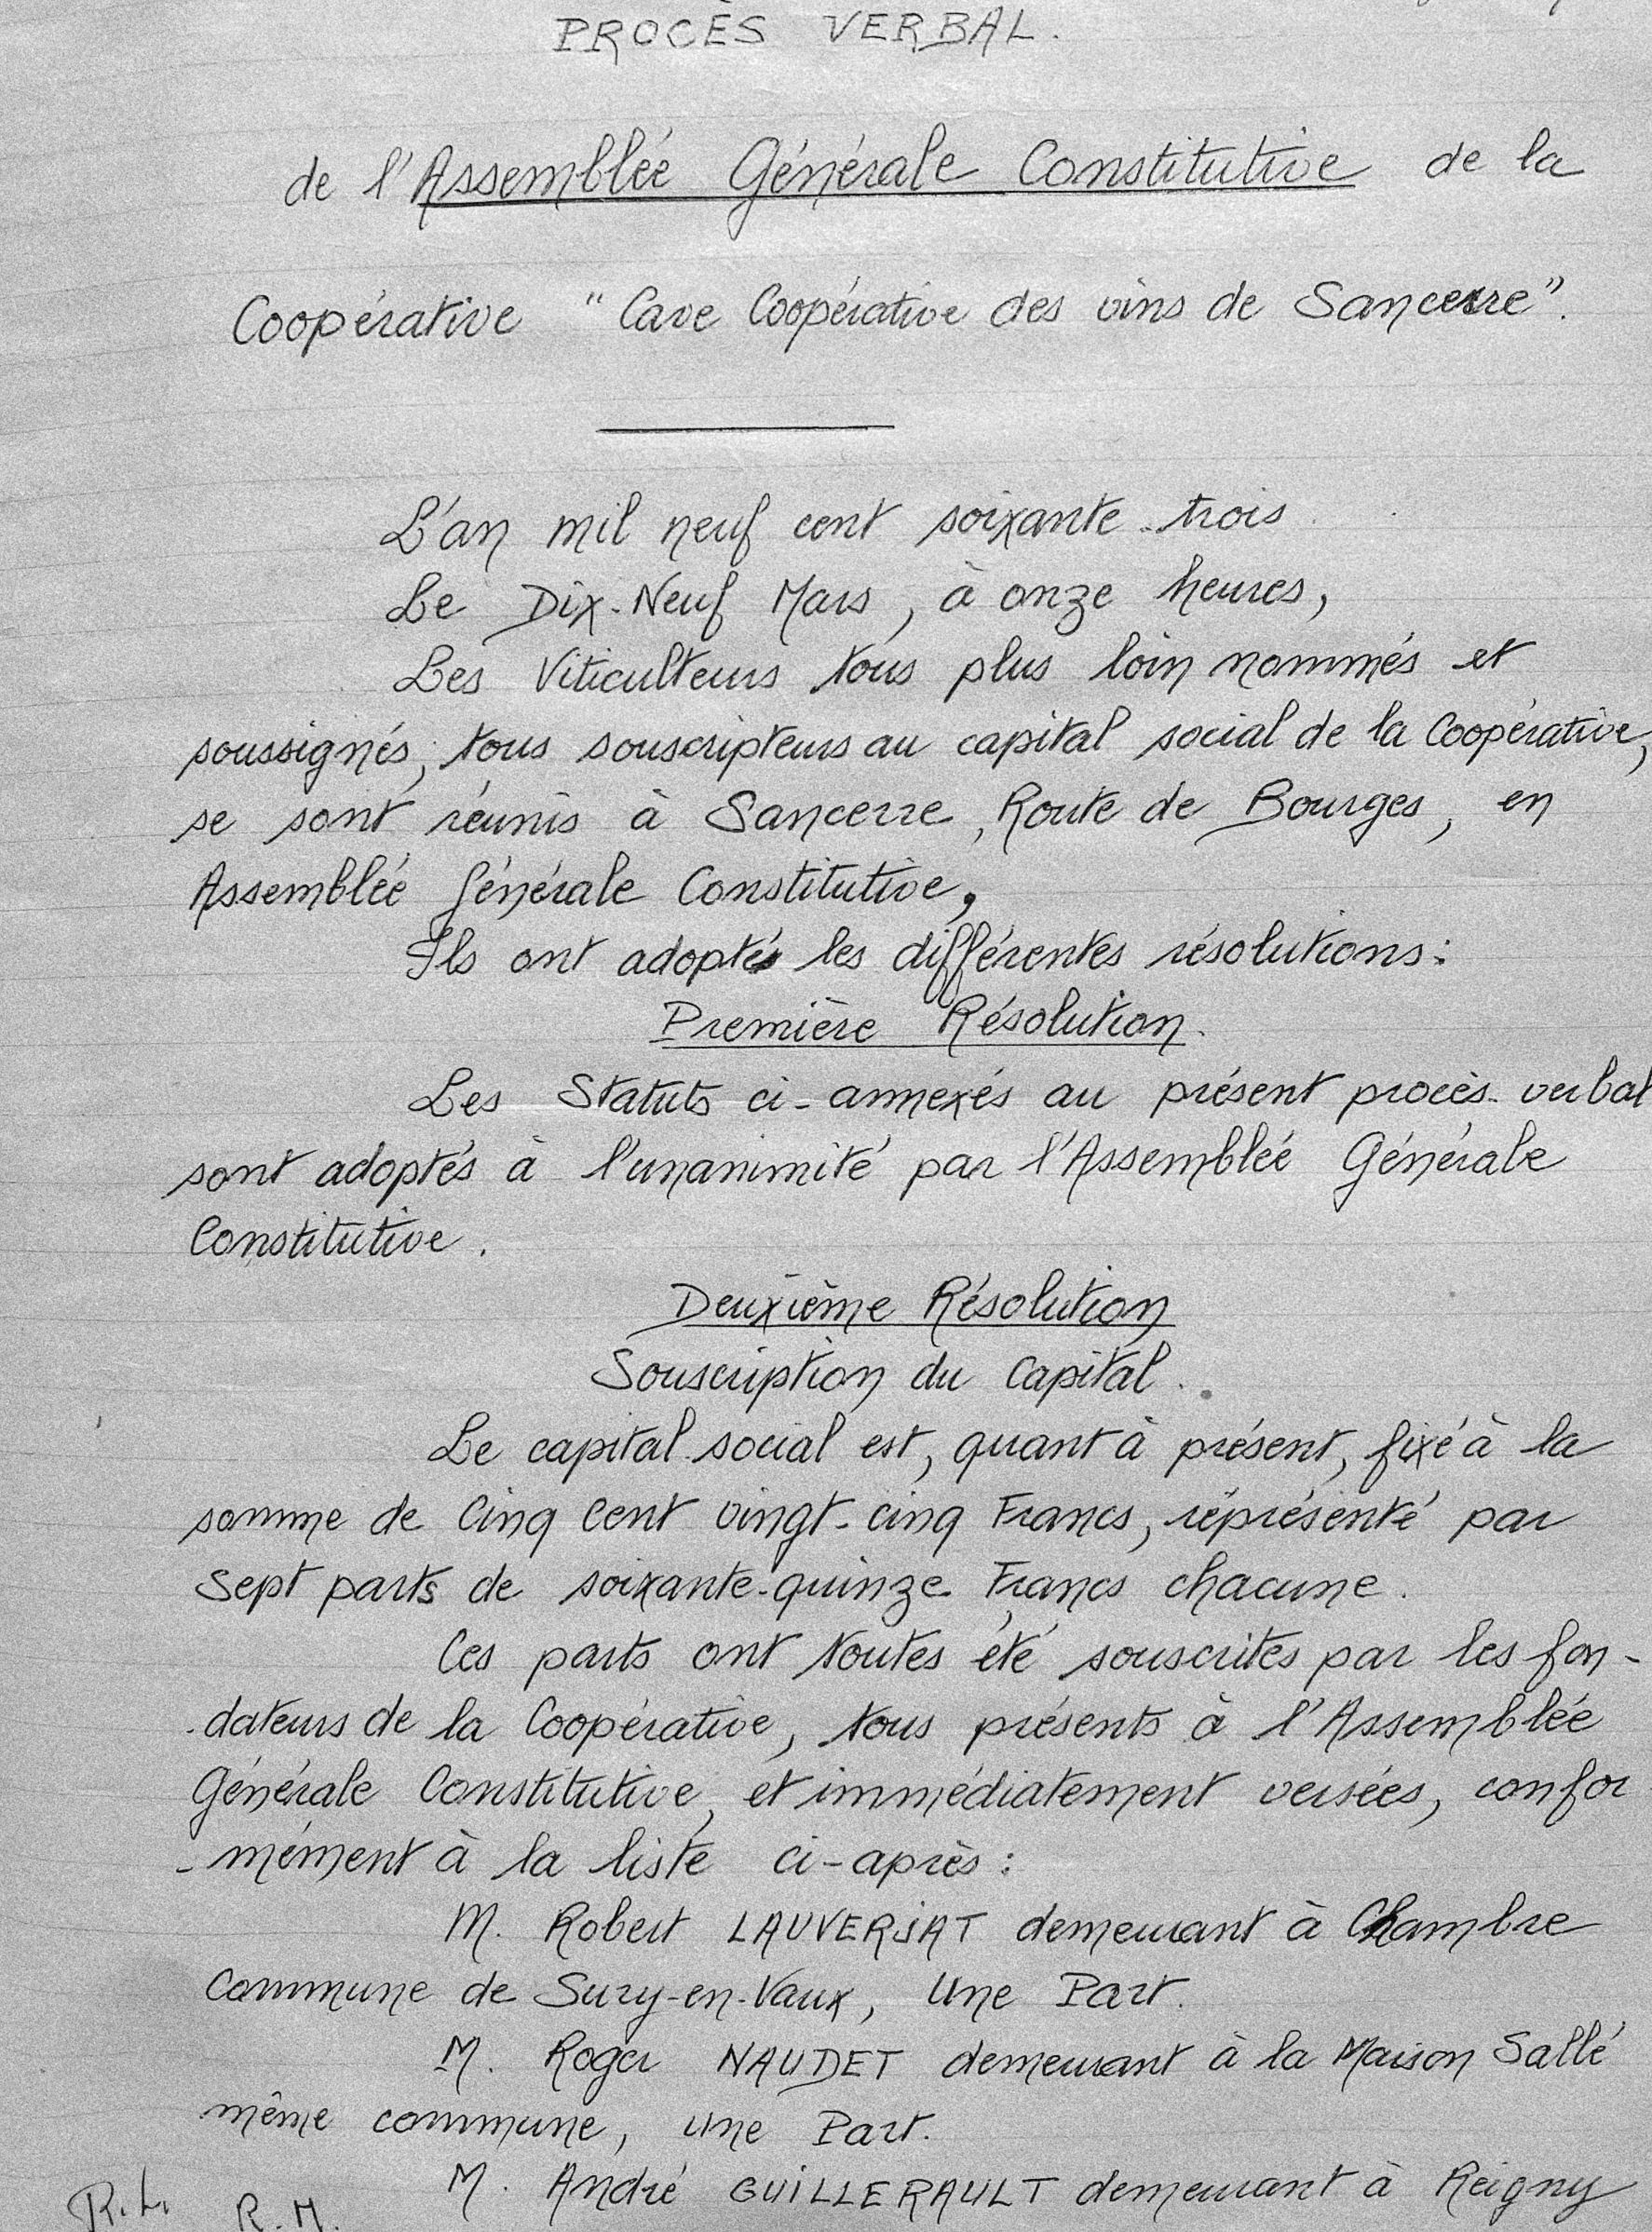 PROCÈS VERBAL.
de l'Assemblée Générale Constitutive de la
Coopérative "Cave Coopérative des vins de Sancerre".
L'an mil neuf cent soixante-trois
Le Dix-Neuf Mars, à onze heures,
Les Viticulteurs tous plus loin nommés et
soussignés, tous souscripteurs au capital social de la Coopérative,
se sont réunis à Sancerre, Route de Bourges, en
Assemblée Générale Constitutive,
Ils ont adoptés les différentes résolutions:
Première Résolution.
Les Statuts ci-annexés au présent procès-verbal
sont adoptés à l'unanimité par l'Assemblée Générale
Constitutive.
Deuxième Résolution
Souscription du Capital.
Le capital social est, quant à présent, fixé à la
somme de Cinq Cent vingt-cinq Francs, réprésenté par
Sept parts de soixante-quinze Francs chacune.
Ces parts ont toutes été souscrites par les fon-
-dateurs de la Coopérative, tous présents à l'Assemblée
Générale Constitutive, et immédiatement versées, confor
-mément à la liste ci-après:
M. Robert LAUVERJAT demeurant à Chambre
Commune de Sury-en-Vaux, Une Part.
M. Roger NAUDET demeurant à la Maison Sallé
même commune, une Part.
M. André GUILLERAULT demeurant à Reigny
R.L. R.M.